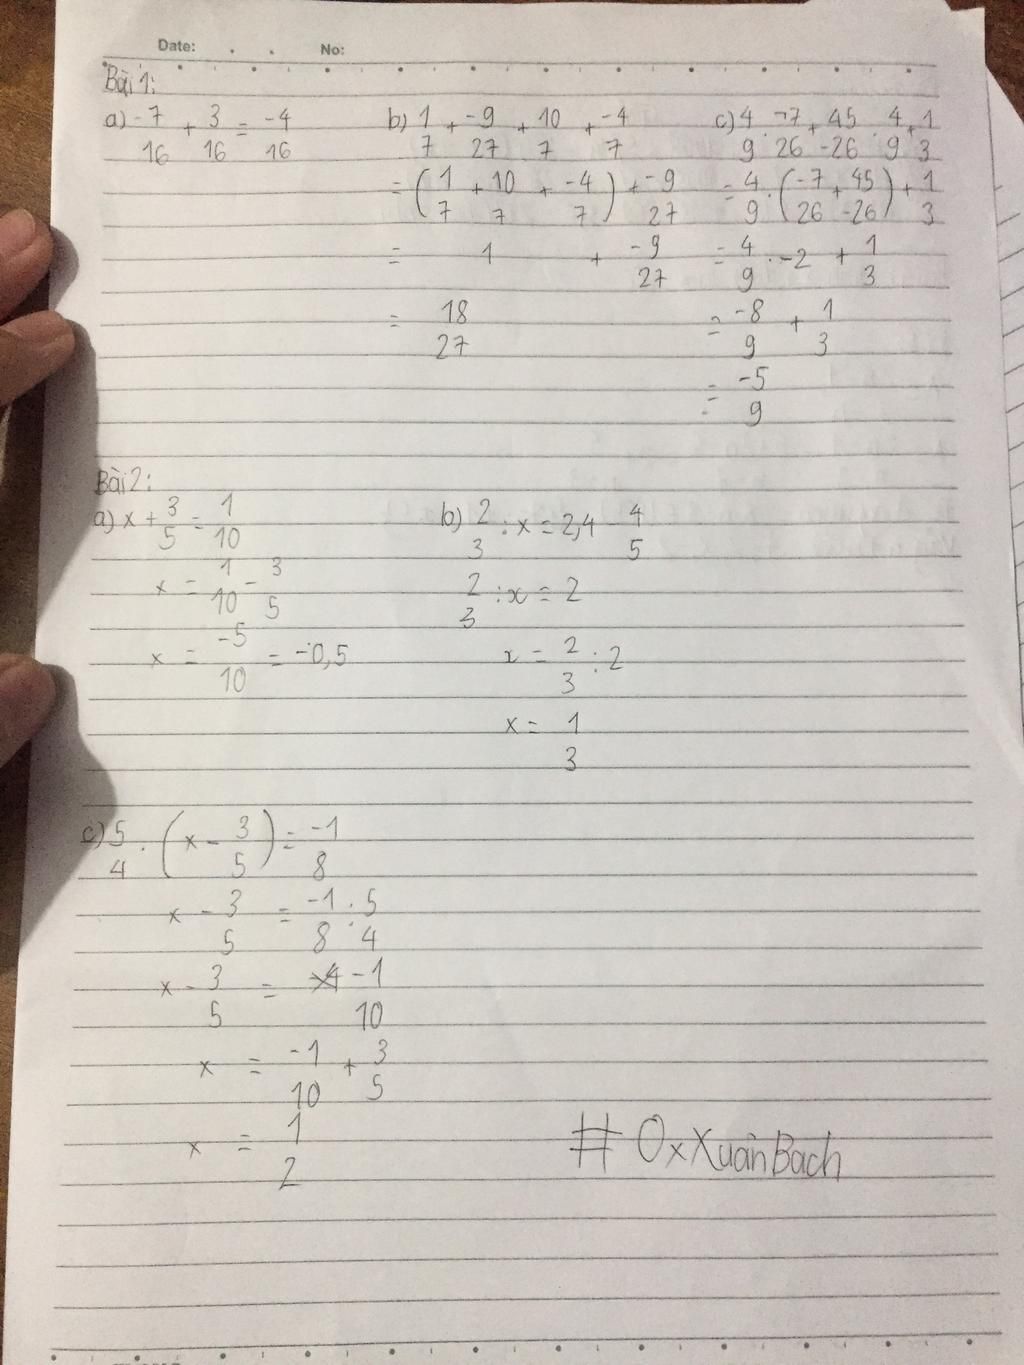 Date: . . No:
Bài 1:
a) -7/16 + 3/16 = -4/16
b) 1/7 + -9/27 + 10/7 + -4/7
= (1/7 + 10/7 + -4/7) + -9/27
= 1 + -9/27
= 18/27
c) 4/9 . -7/26 + 45/-26 . 4/9 + 1/3
= 4/9 . (-7/26 + 45/-26) + 1/3
= 4/9 . -2 + 1/3
= -8/9 + 1/3
= -5/9
Bài 2:
a) x + 3/5 = 1/10
x = 1/10 - 3/5
x = -5/10 = -0,5
b) 2/3 : x = 2,4 - 4/5
2/3 : x = 2
x = 2/3 : 2
x = 1/3
c) 5/4 . (x - 3/5) = -1/8
x - 3/5 = -1/8 : 5/4
x - 3/5 = -1/10
x = -1/10 + 3/5
x = 1/2
# OxXuânBach